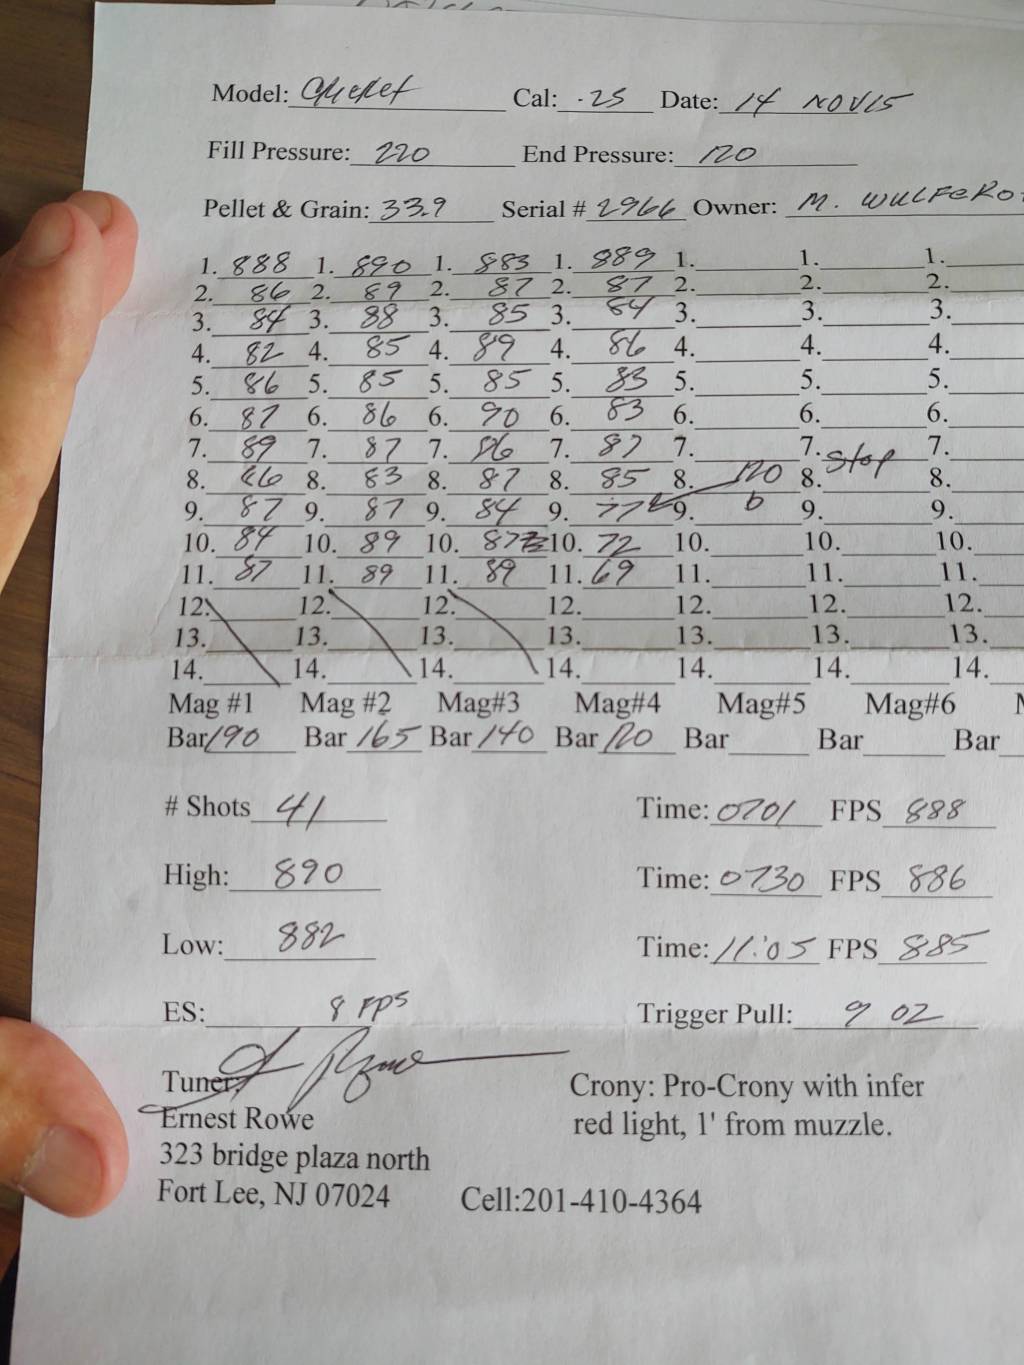 Model: Cricket Cal: .25 Date: 14 NOV15
Fill Pressure: 220 End Pressure: 120
Pellet & Grain: 33.9 Serial # 2966 Owner: M. WULFERO
1. 888 1. 890 1. 883 1. 889 1. 1. 1.
2. 86 2. 89 2. 87 2. 87 2. 2. 2.
3. 84 3. 88 3. 85 3. 84 3. 3. 3.
4. 82 4. 85 4. 89 4. 86 4. 4. 4.
5. 86 5. 85 5. 85 5. 83 5. 5. 5.
6. 87 6. 86 6. 90 6. 83 6. 6. 6.
7. 89 7. 87 7. 86 7. 87 7. 7. Stop 7.
8. 86 8. 83 8. 87 8. 85 8. 120 8. 8.
9. 87 9. 87 9. 84 9. 77 9. b 9. 9.
10. 84 10. 89 10. 87 10. 72 10. 10. 10.
11. 87 11. 89 11. 89 11. 69 11. 11. 11.
12. 12. 12. 12. 12. 12. 12.
13. 13. 13. 13. 13. 13. 13.
14. 14. 14. 14. 14. 14. 14.
Mag #1 Mag #2 Mag#3 Mag#4 Mag#5 Mag#6
Bar 190 Bar 165 Bar 140 Bar 120 Bar Bar Bar
# Shots 41 Time: 0701 FPS 888
High: 890 Time: 0730 FPS 886
Low: 882 Time: 11:05 FPS 885
ES: 8 FPS Trigger Pull: 9 OZ
Tuner: Crony: Pro-Crony with infer
Ernest Rowe red light, 1' from muzzle.
323 bridge plaza north
Fort Lee, NJ 07024 Cell:201-410-4364